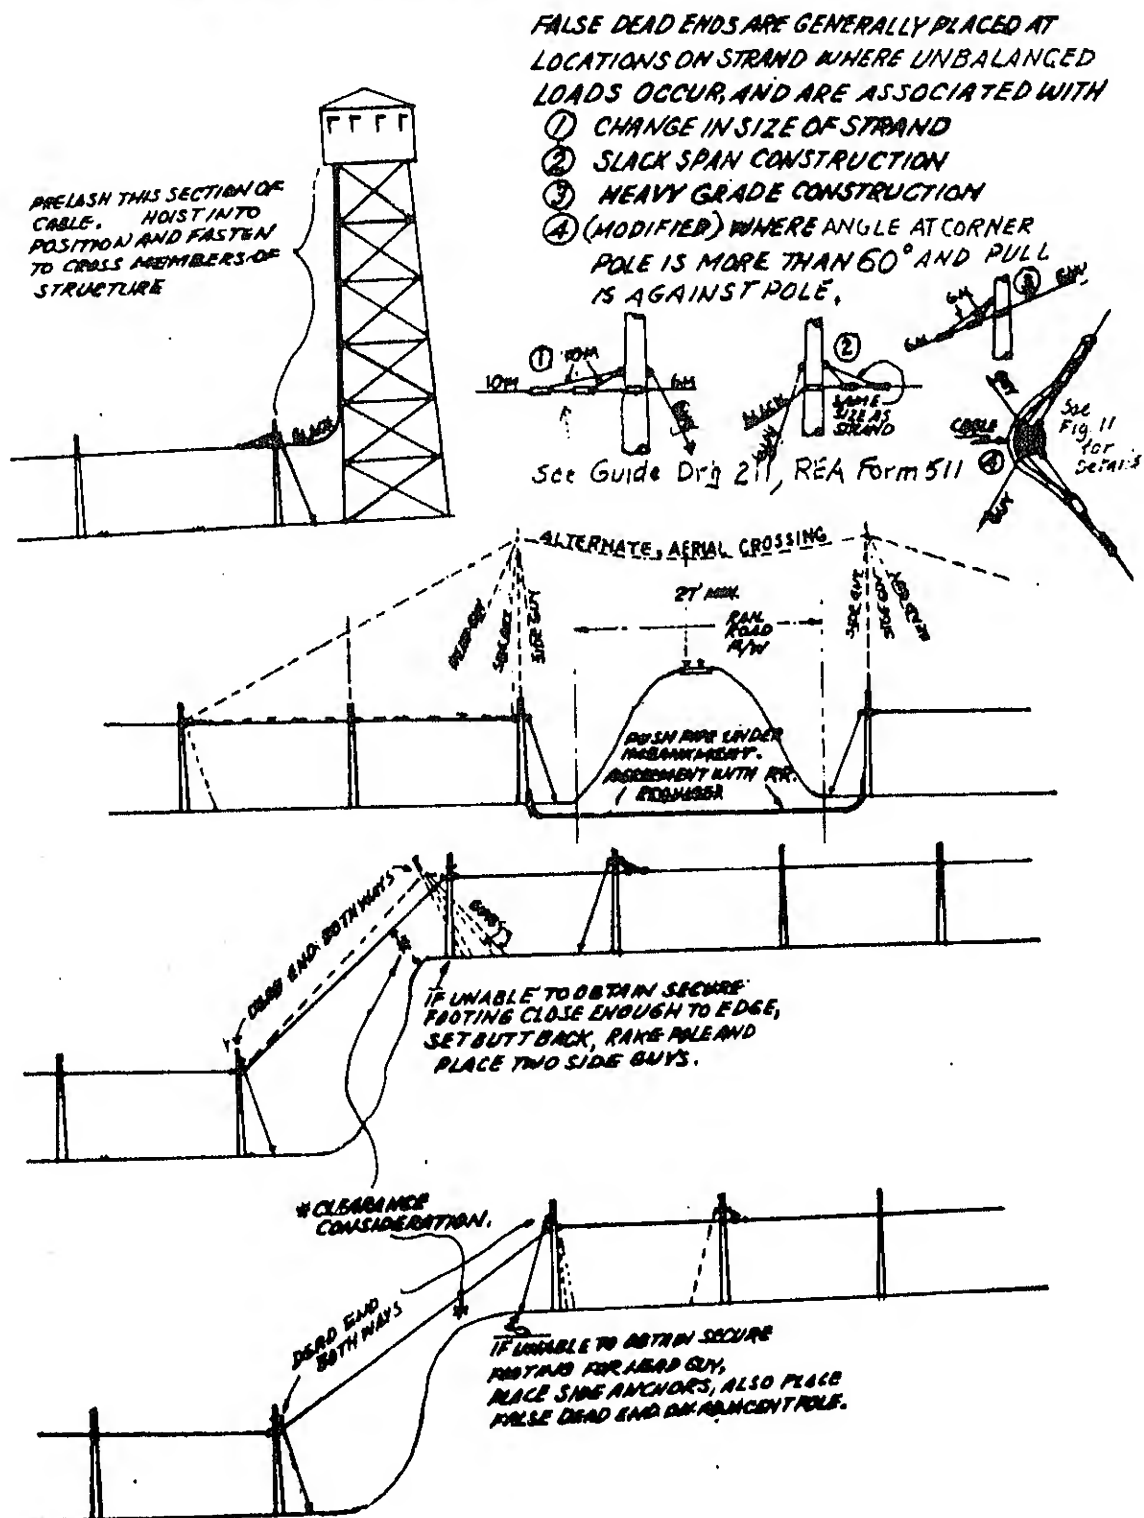 FALSE DEAD ENDS ARE GENERALLY PLACED AT
LOCATIONS ON STRAND WHERE UNBALANCED
LOADS OCCUR, AND ARE ASSOCIATED WITH
① CHANGE IN SIZE OF STRAND
② SLACK SPAN CONSTRUCTION
③ HEAVY GRADE CONSTRUCTION
④ (MODIFIED) WHERE ANGLE AT CORNER
POLE IS MORE THAN 60° AND PULL
IS AGAINST POLE.
PRELASH THIS SECTION OF
CABLE. HOIST INTO
POSITION AND FASTEN
TO CROSS MEMBERS OF
STRUCTURE
SLACK
①
10M
10M
6M
GUY
②
SLACK
GUY
SAME
SIZE AS
STRAND
③
6M
6M
GUY
GUY
CABLE
④
GUY
See
Fig. 11
for
Details
See Guide Drg 211, REA Form 511
ALTERNATE, AERIAL CROSSING
27' MIN.
RAIL
ROAD
R/W
HEAD GUY
SIDE GUY
SIDE GUY
SIDE GUY
SIDE GUY
HEAD GUY
PUSH PIPE UNDER
EMBANKMENT.
AGREEMENT WITH RR.
REQUIRED
DEAD END BOTH WAYS
GUYS
IF UNABLE TO OBTAIN SECURE
FOOTING CLOSE ENOUGH TO EDGE,
SET BUTT BACK, RAKE POLE AND
PLACE TWO SIDE GUYS.
*CLEARANCE
CONSIDERATION.
DEAD END
BOTH WAYS
IF UNABLE TO OBTAIN SECURE
FOOTING FOR HEAD GUY,
PLACE SIDE ANCHORS, ALSO PLACE
FALSE DEAD END ON ADJACENT POLE.